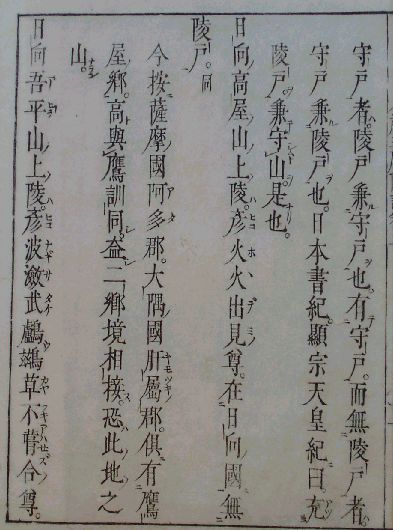 守戸者。陵戸兼守戸也。有守戸。而無陵戸者。
守戸兼陵戸也。日本書紀。顯宗天皇紀曰。充
陵戸。兼守山。是也。
日向高屋山上陵。彦火火出見尊。在日向國。無
陵戸。同
今按薩摩國阿多郡。大隅國肝屬郡。倶有鷹
屋郷。高與鷹訓同。盖二郷境相接。恐此地之
山。
日向吾平山上陵。彦波瀲武鸕鷀草不葺合尊。